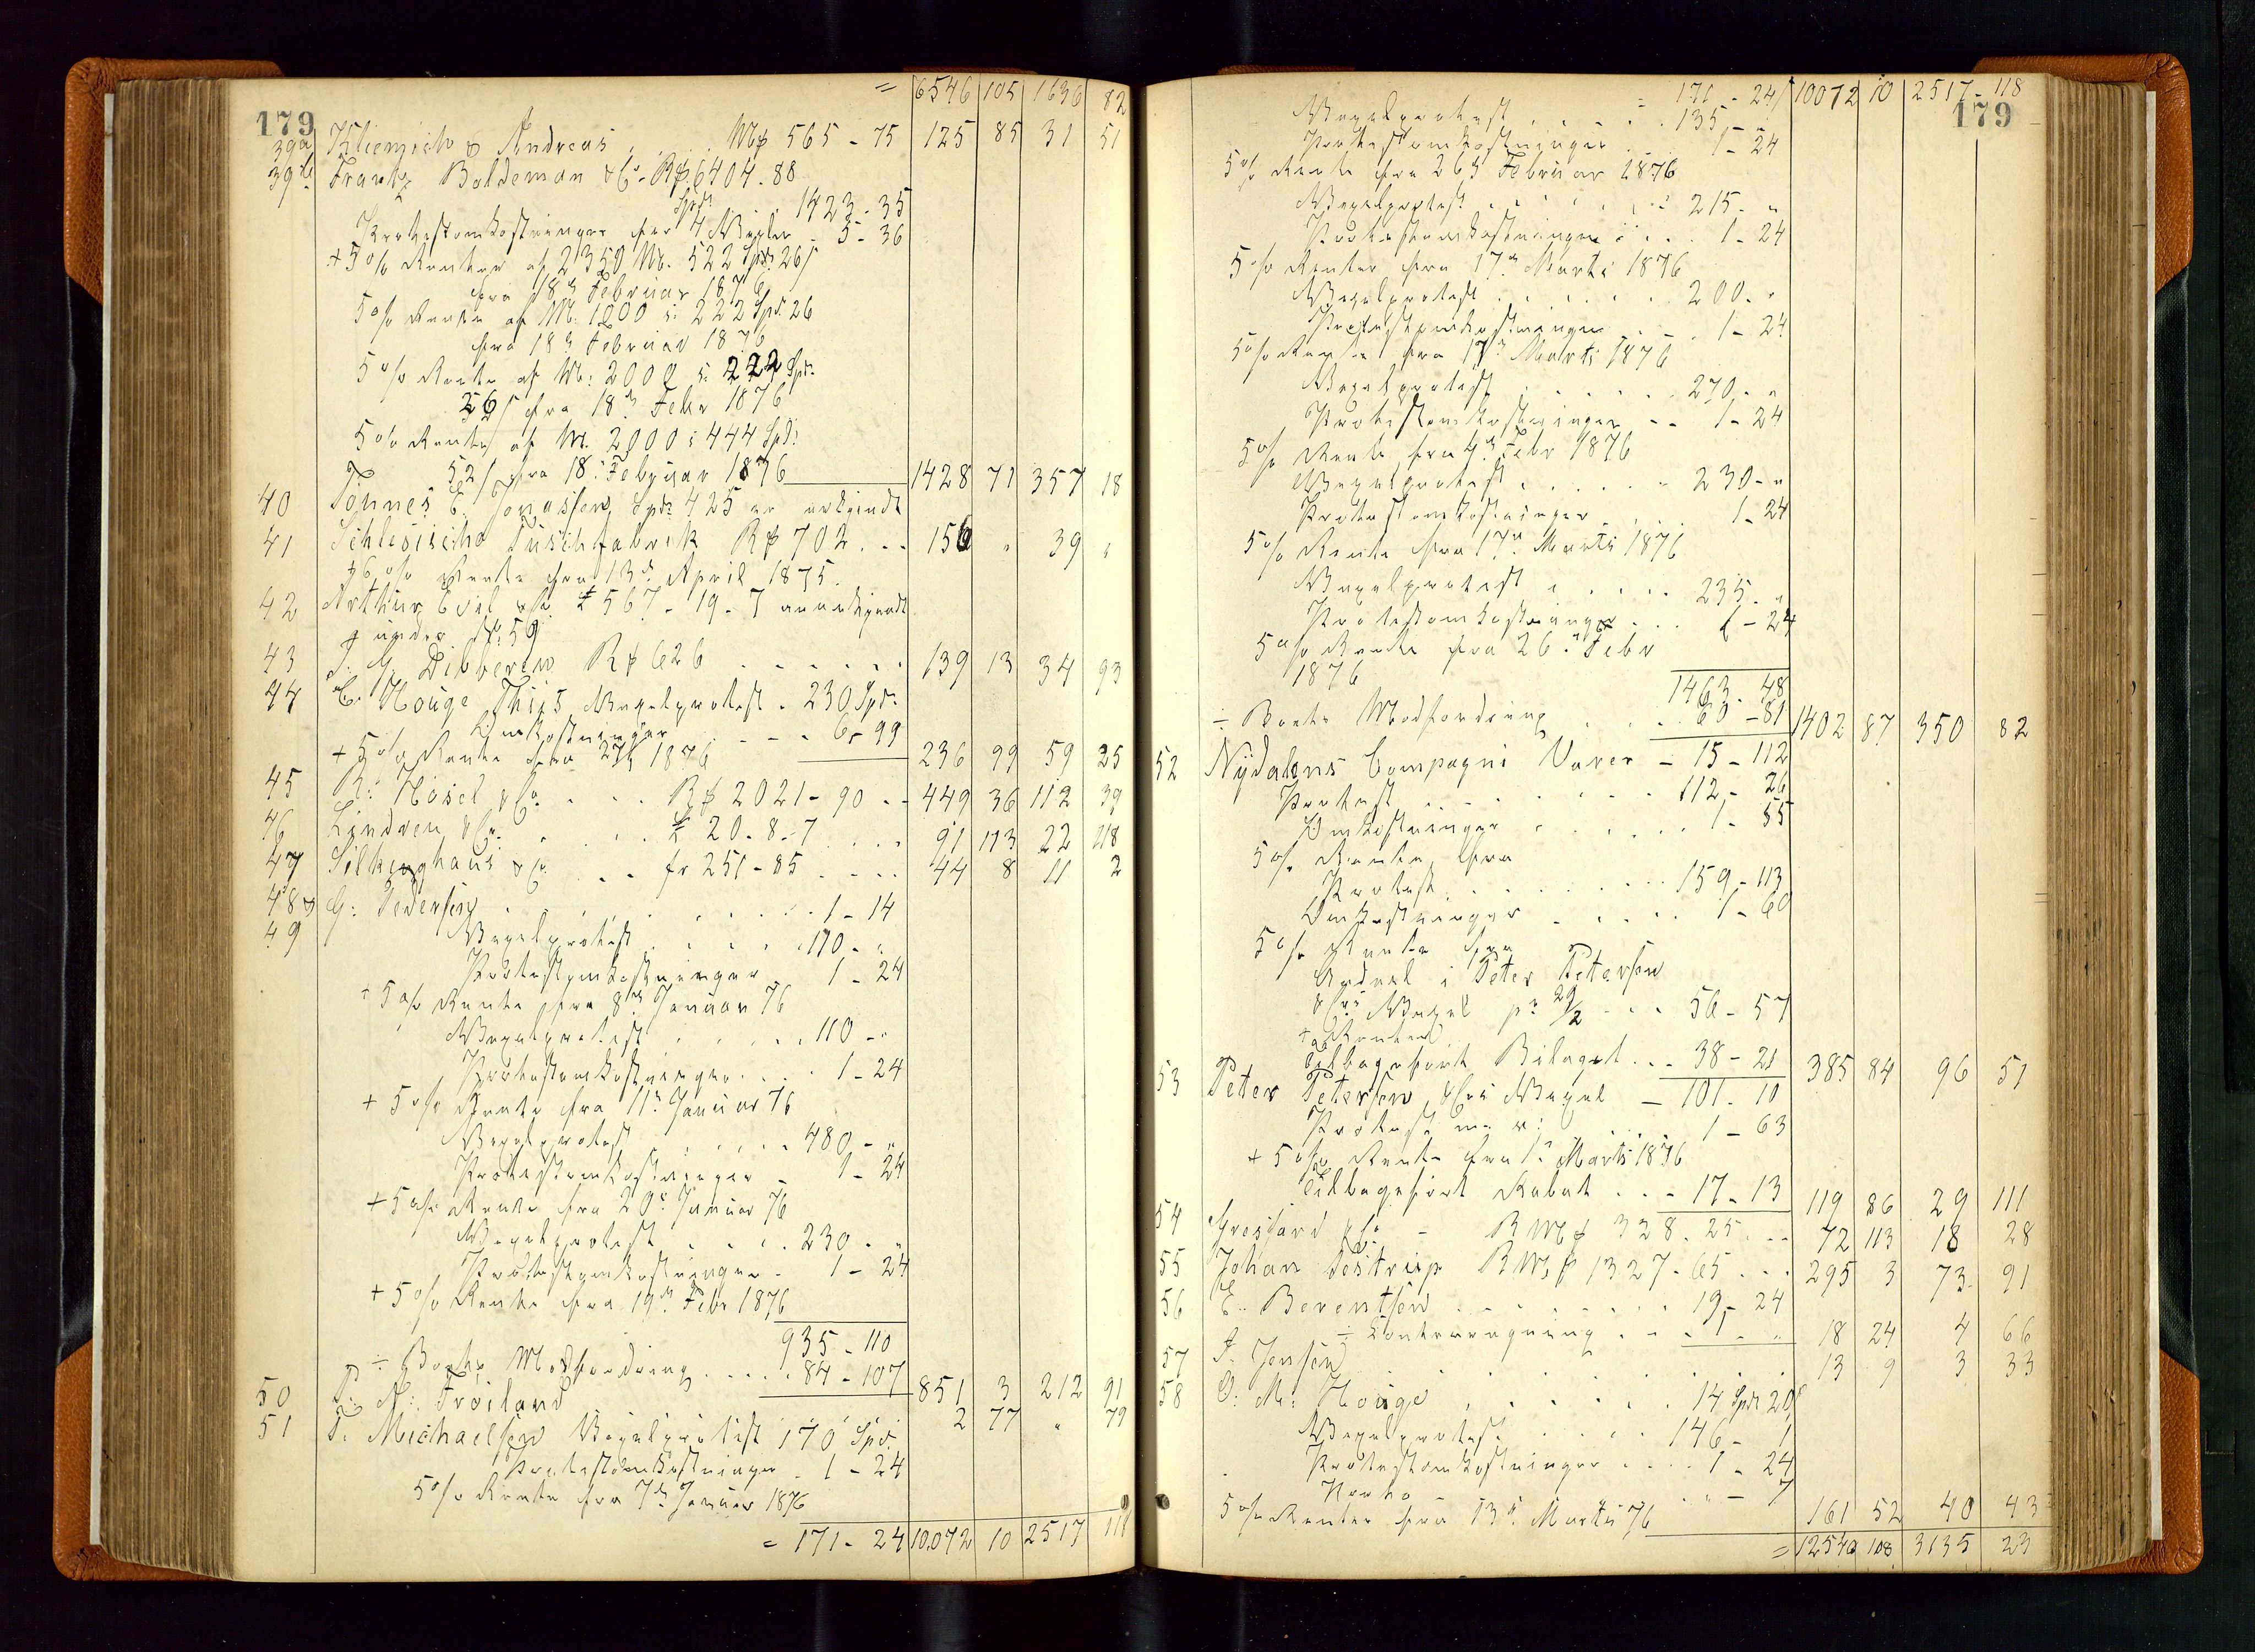 = 6546 105 1636 82
179
39a Kliemich & Andreas . . . M$ 565 - 75 125 85 31 51
39b Frantz Boldeman & Co R$ 6404. 88
Spd. . . 1423 - 35
Protestomkostninger for 4 Vexler - 5 - 36
+ 5 % Renter af 2350 M. 522 Spd. 26 /
fra 18 Februar 1876
5 % Rente af M. 1000 : 222 Spd. 26
fra 18 Februar 1876
5 % Rente af M: 2000 : 222 Spd.
26 / fra 18 Febr 1876
5 % Rente af M. 2000 : 444 Spd:
52 / fra 18. Februar 1876 1428 71 357 18
40 Tönnes E. Jonassen, Spd. 425 er
41 Schlesische Tuschfabrik R$ 702 . . . 156 " 39 "
+ 6 % Rente fra 13 April 1875.
42 Arthur & Co £ 567 - 19 - 7
under No 59
43 J. G. Dibbern R$ 626 . . . . . . 139 13 34 93
44 C. Houge Thiis Vexelprotest - 230 Spd.
Omkostninger . . - - 6 - 99
+ 5 % Rente fra 1876 236 99 59 25
45 R: Hösel & Co . . . R$ 2021 - 90 - - 449 36 112 39
46 Lindren & Co . . . £ 20 - 8 - 7 . . . . 91 113 22 118
47 Silkinghaus & Co . . . fr 251 - 85 . . . . 44 8 11 2
48 & G: Pedersen . . . . . . . 1 - 14
49 Vexelprotest . . . . . 110 - "
Protestomkostninger - 1 - 24
+ 5 % Rente fra 8 Januar 76
Vexelprotest . . . . . 110 - "
Protestomkostninger . . . 1 - 24
+ 5 % Rente fra 11 Januar 76
Vexelprotest . . . . . 480 - "
Protestomkostninger - 1 - 24
+ 5 % Rente fra 20 Januar 76
Vexelprotest . . . . 230 - "
Protestomkostninger - 1 - 24
+ 5 % Rente fra 19 Febr 1876
935 - 110
÷ Boets Modfordring . . . . . 84 - 107 851 3 212 91
50 P. N. Tröiland 2 77 " 79
51 T. Michaelsen Vexelprotest 170 Spd.
Protestomkostninger . 1 - 24
5 % Rente fra 7 Januar 1876
= 171 - 24 10,072 10 2517 118
= 171 - 24 10072 10 2517 - 118
179
Vexelprotest . . . . . 135 "
Protestomkostninger . . 1 - 24
5 % Rente fra 26 Februar 1876
Vexelprotest . . . . . . 215 - "
Protestomkostninger . . . 1 - 24
5 % Renter fra 17 Marts 1876
Vexelprotest . . . . . . 200 - "
Protestomkostninger . . . 1 - 24
5 % Rente fra 17 Marts 1876
Vexelprotest . . . . . 270 - "
Protestomkostninger - - 1 - 24
5 % Rente fra 4 Febr 1876
Vexelprotest . . . . . - 230 - "
Protestomkostninger . . . 1 - 24
5 % Rente fra 17 Marts 1876
Vexelprotest . . . . . 235 - "
Protestomkostninger . . . 1 - 24
5 % Rente fra 26 Febr
1876
1463 - 48
÷ Boets Modfordring . . . . 60 - 81 1402 87 350 82
52 Nydalens Compagni Varer - 15 - 112
Protest . . . . . . . 112 - 26
Omkostninger . . . . . 1 - 85
5 % Rente fra
Protest . . . . . . . 159 - 113
Omkostninger . . . . . 1 - 60
5 % Rente fra
Andeel i Peter Petersen
& Co Vexel pr 29/2 . . . 56 - 57
+ Renter
tilbageført Bilaget . . . 38 - 21 385 84 96 51
53 Peter Petersen & Co Vexel - 101 - 10
Protest m. v: . . . 1 - 63
+ 5 % Rente fra 1 Marts 1876
Tilbageført Rabat . . . 17 - 13 119 86 29 111
54 & Co - R M$ 328 . 25 . . . 72 113 18 28
55 Johan R M$ 1327 - 65 . . . 295 3 73 91
56 E. Berentsen . . . . . . . . 19 - 24
÷ Contraregning . . - 1 - " 18 24 4 66
57 J. Jensen . . . . . . . . 13 9 3 33
58 O: M: Houge . . . . . . 14 Spd 20
Vexelprotest . . . . . 146 - 1
Protestomkostninger . . . . 1 - 24
Porto . . . " - 7
5 % Renter fra 13 Marts 76 161 52 40 43
= 12540 108 3135 23